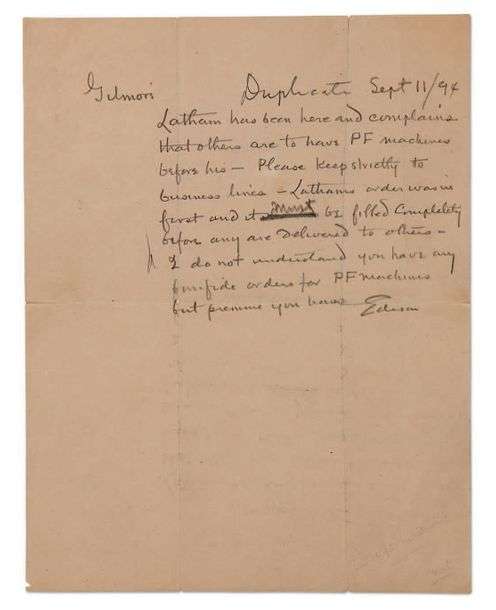 Gilmori Duplicate Sept 11/94
Latham has been here and complains
that others are to have PF machines
before his – Please keep strictly to
business lines – Lathams order was in
first and it must be filled Completely
before any are Delivered to others –
I do not understand you have any
bonifide orders for PF machines
but presume you have Edison